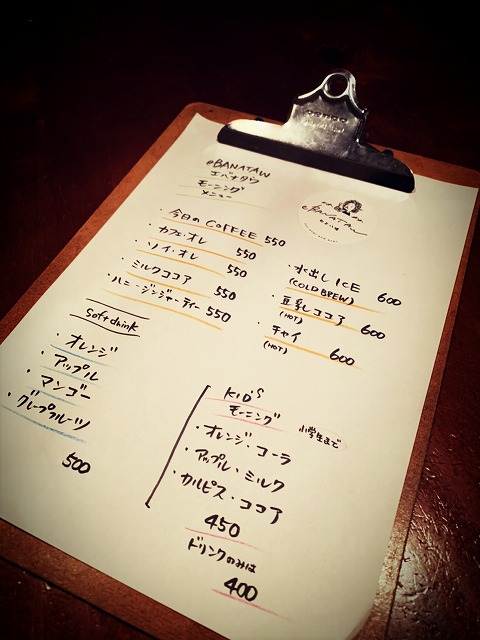 eBANATAW
エバナタウ
モーニング
メニュー
eBANATAW
・今日のCOFFEE 550
・カフェ・オレ 550
・ソイ・オレ 550
・ミルクココア 550
・ハニージンジャーティー 550
・水出しICE
(COLD BREW) 600
・豆乳ココア
(HOT) 600
・チャイ
(HOT) 600
Soft drink
・オレンジ
・アップル
・マンゴー
・グレープフルーツ
500
KID'S
モーニング 小学生まで
・オレンジ・コーラ
・アップル・ミルク
・カルピス・ココア
450
ドリンクのみは
400